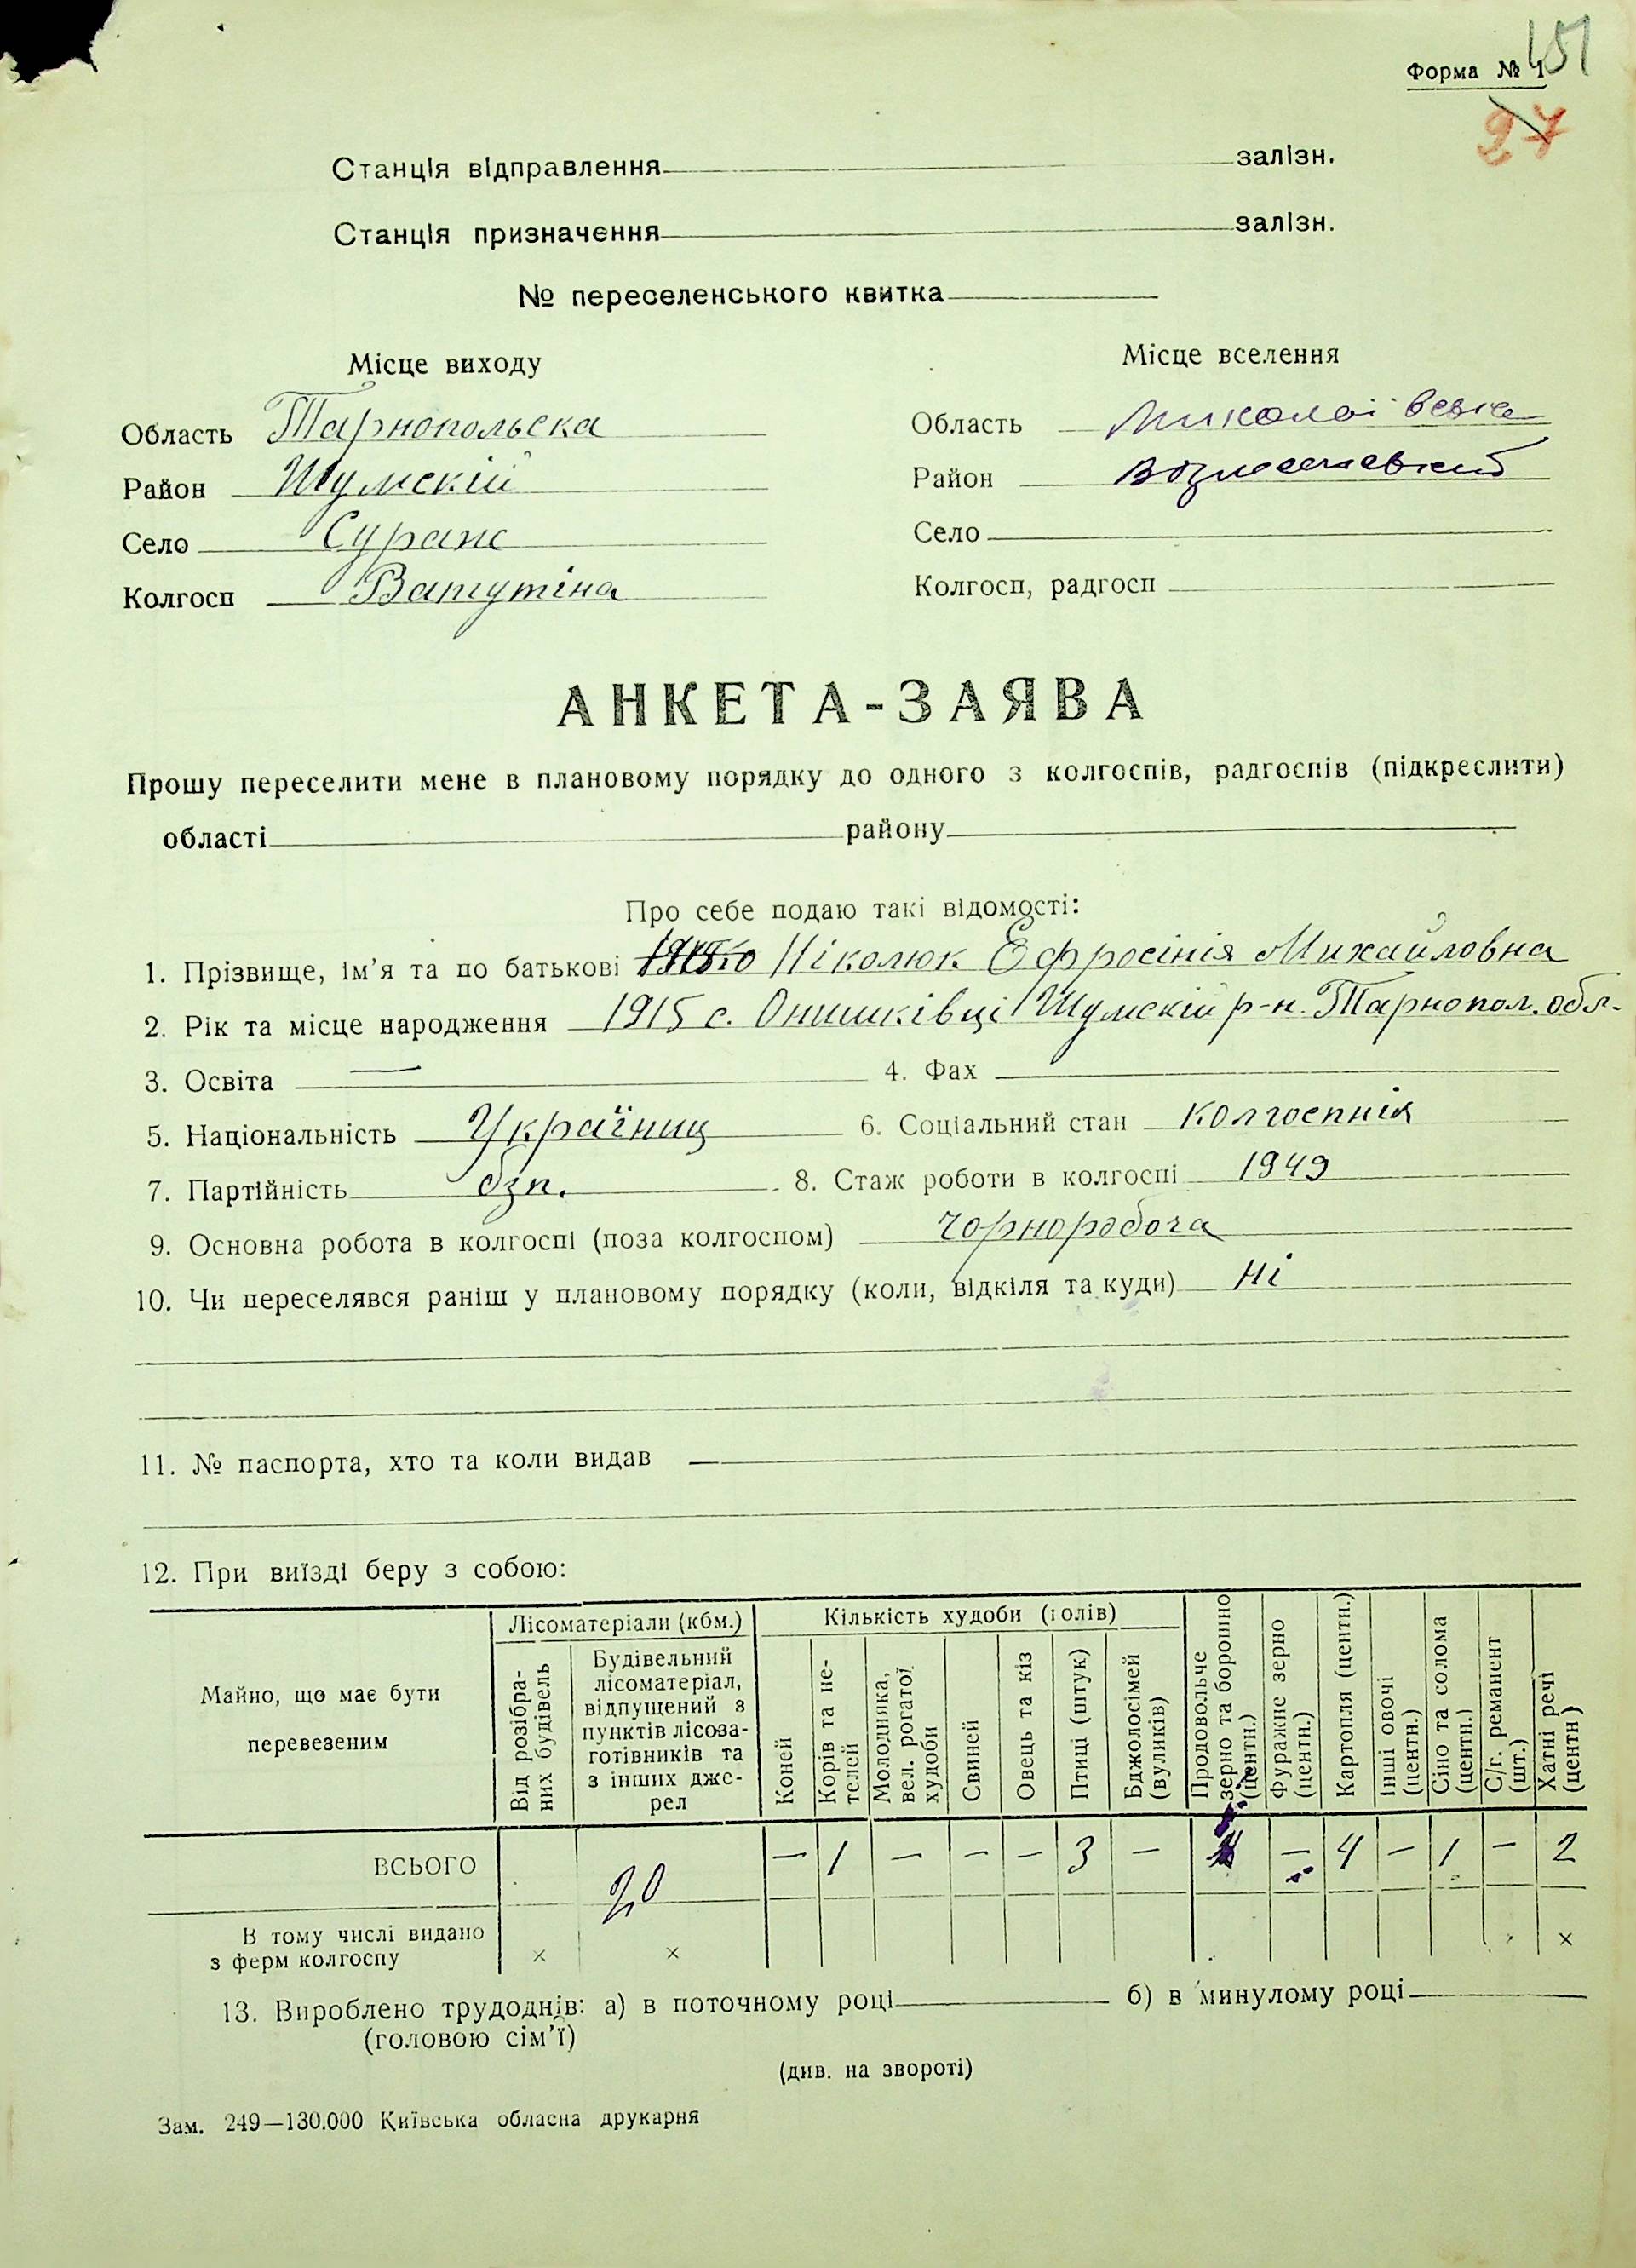 Форма № 1
151
27
Станція відправлення залізн.
Станція призначення залізн.
№ переселенського квитка
Місце виходу
Місце вселення
Область Тарнопольска
Область Миколаївська
Район Шумскій
Район Вознесенський
Село Сураж
Село
Колгосп Ватутіна
Колгосп, радгосп
АНКЕТА-ЗАЯВА
Прошу переселити мене в плановому порядку до одного з колгоспів, радгоспів (підкреслити)
області району
Про себе подаю такі відомості:
1. Прізвище, ім'я та по батькові Ніколюк Ефросінія Михайловна
2. Рік та місце народження 1915 с. Онишківці Шумскій р-н. Тарнопол. обл.
3. Освіта — 4. Фах
5. Національність Україниц 6. Соціальний стан колгоспнія
7. Партійність бзп. 8. Стаж роботи в колгоспі 1949
9. Основна робота в колгоспі (поза колгоспом) чорноробоча
10. Чи переселявся раніш у плановому порядку (коли, відкіля та куди) Ні
11. № паспорта, хто та коли видав —
12. При виїзді беру з собою:
Майно, що має бути перевезеним
Лісоматеріали (кбм.)
Кількість худоби (голів)
Від розібраних будівель
Будівельний лісоматеріал, відпущений з пунктів лісозаготівників та з інших джерел
Коней
Корів та нетелей
Молодняка, вел. рогатої худоби
Свиней
Овець та кіз
Птиці (штук)
Бджолосімей (вуликів)
Продовольче зерно та борошно (центн.)
Фуражне зерно (центн.)
Картопля (центн.)
Інші овочі (центн.)
Сіно та солома (центн.)
С/г. реманент (шт.)
Хатні речі (центн)
ВСЬОГО 20 — 1 — — — 3 — — 4 — 1 — 2
В тому числі видано з ферм колгоспу × × ×
13. Вироблено трудоднів: а) в поточному році б) в минулому році
(головою сім'ї)
(див. на звороті)
Зам. 249—130.000 Київська обласна друкарня